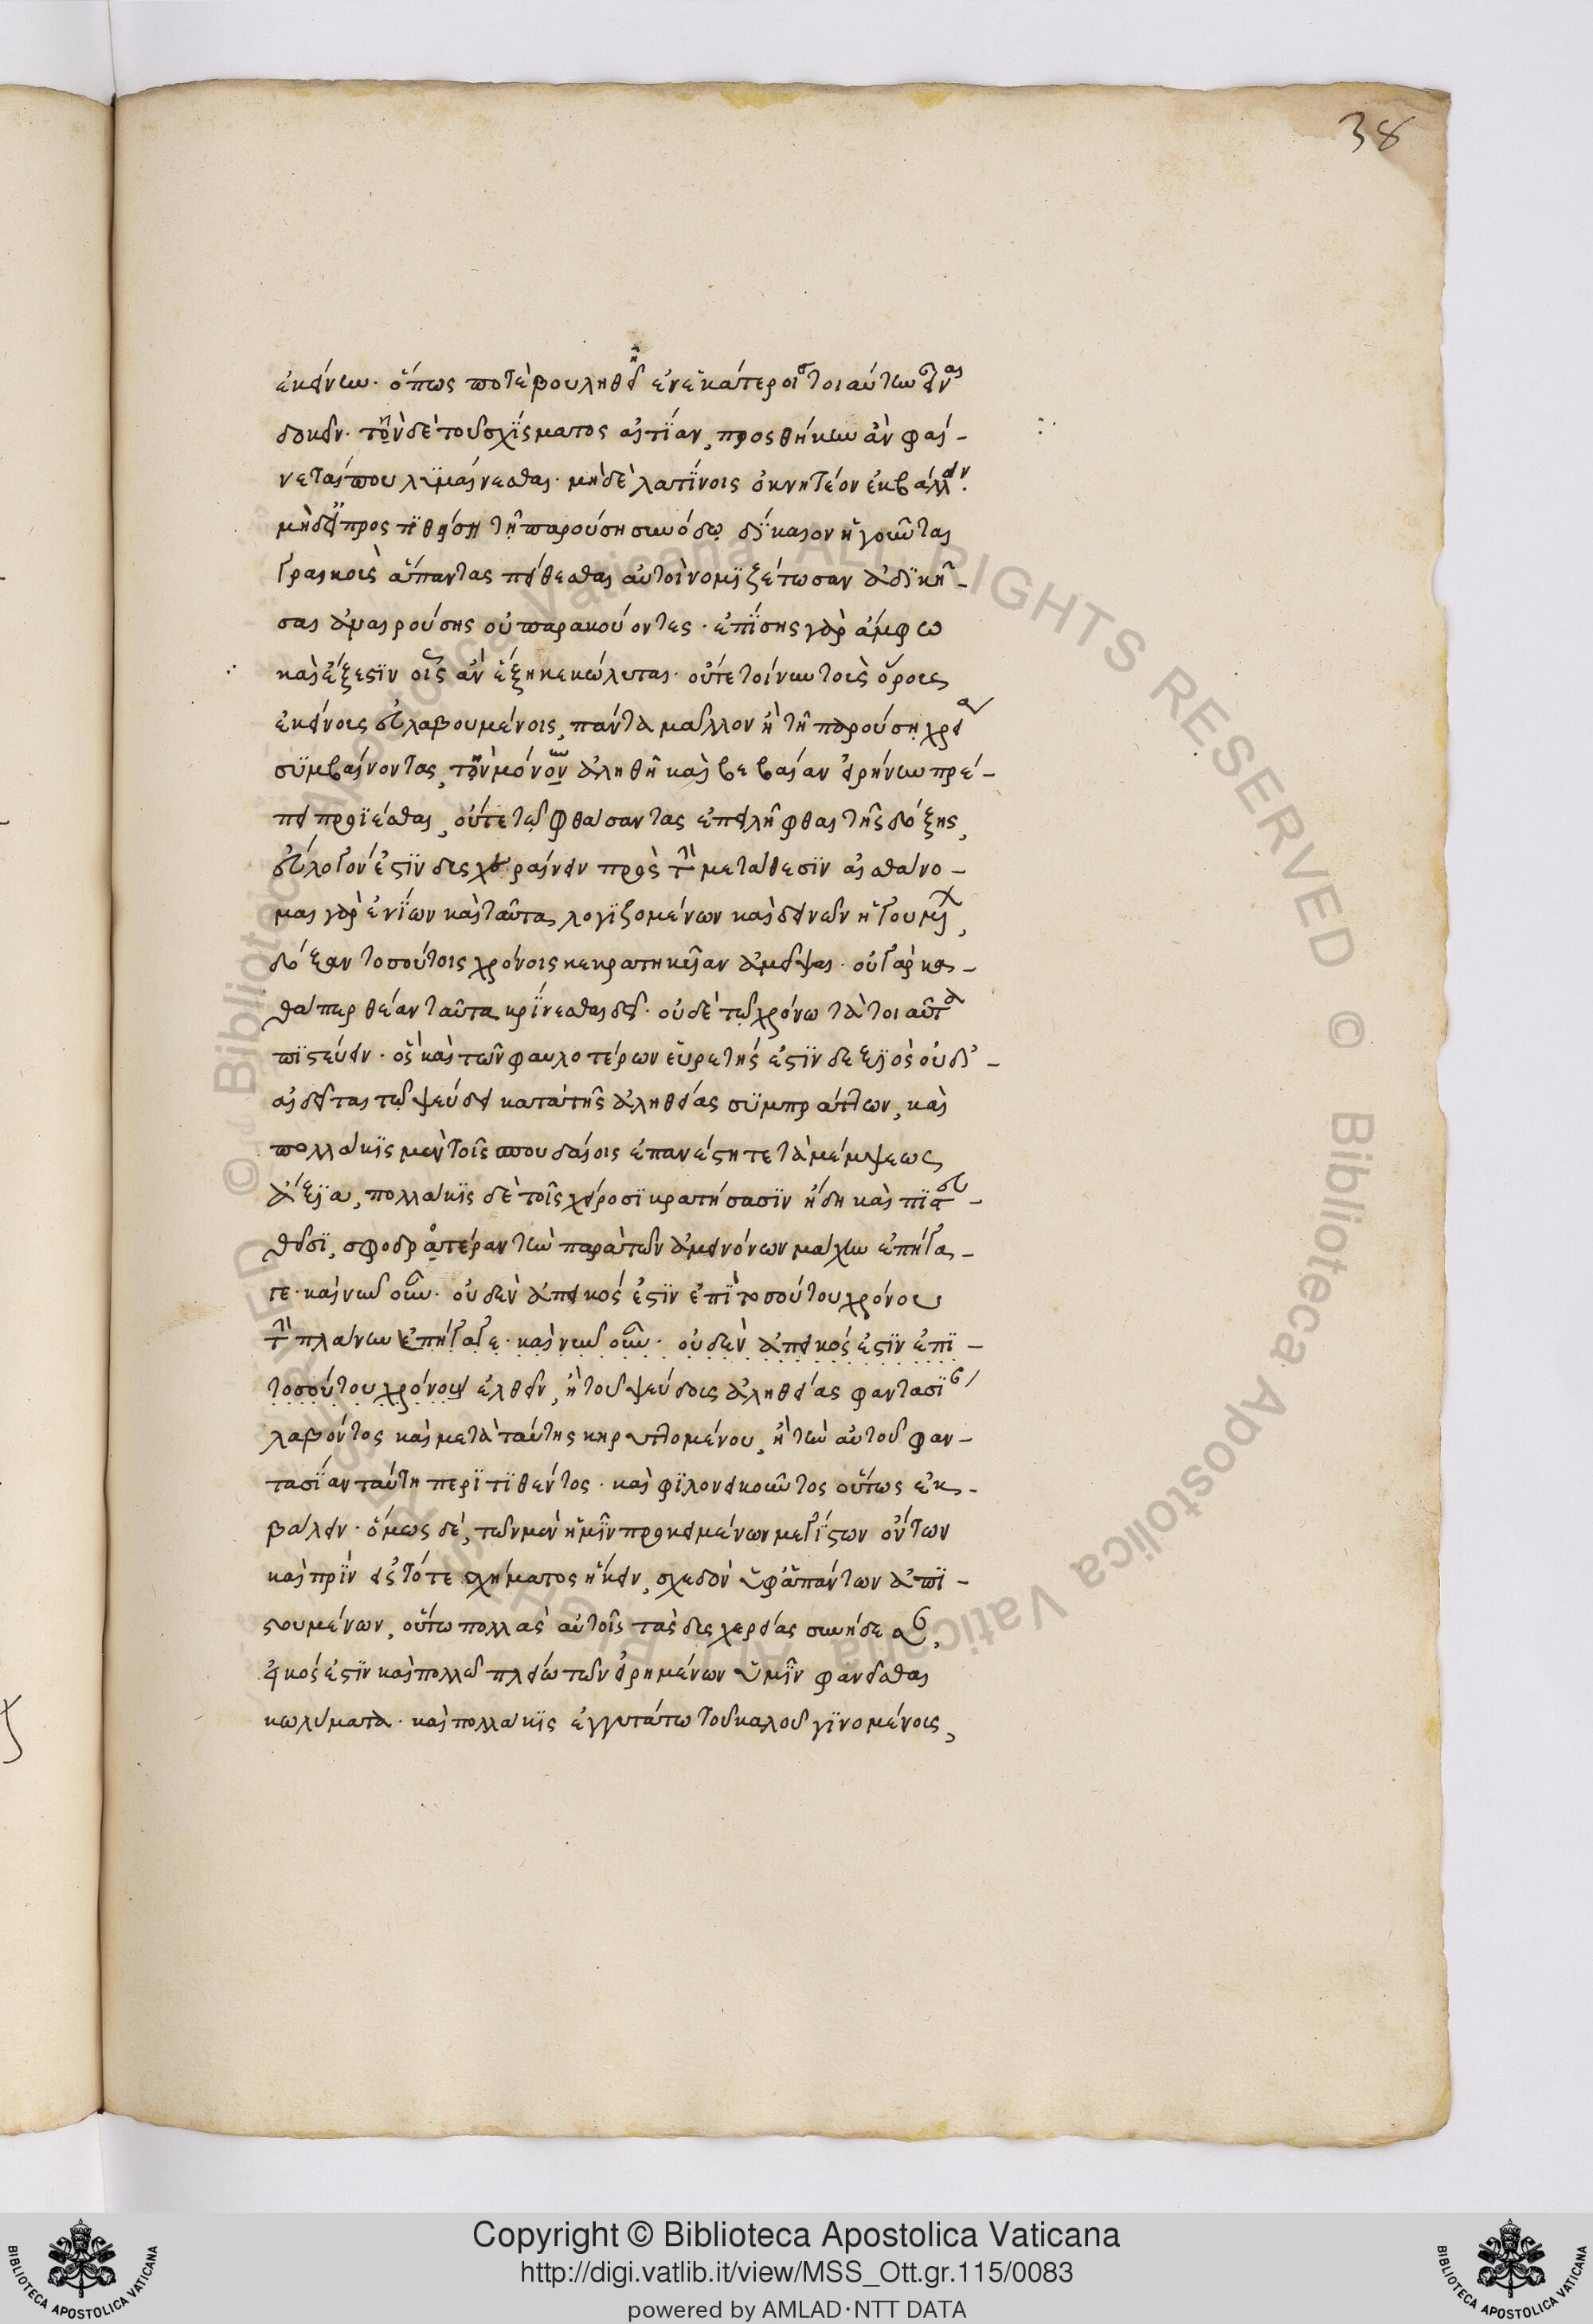 38
ἐκείνων. ὅπως ποτὲ βουληθῇ ἐν ἑκατέροις τοιαύτην εἶναι
δοκεῖν. τὴν δὲ τοῦ σχίσματος αἰτίαν, προσθήκην ἂν φαί-
νεται που λυμαίνεσθαι. μὴ δὲ λατίνοις ὀκνητέον ἐκβάλλειν.
μὴ δὲ προστιθείση τῇ παρούσῃ συνόδῳ δίκαιον ἡγοῦνται
Γραικοὶς ἅπαντας πείθεσθαι αὐτοὶ νομιζέτωσαν ἀδικῆ-
σαι ἀμαιρούσης οὐ παρακούοντες. ἐπίσης γὰρ ἄμφω
καὶ ἔξεστιν οἷς ἂν ἕξη κεκώλυται. οὔτε τοίνυν τοὺς ὅρους
ἐκείνοις εὐλαβουμένοις, πάντα μᾶλλον ἢ τῇ παρούσῃ χρείᾳ
συμβαίνοντας, τὴν μόνον ἀληθῆ καὶ βεβαίαν εἰρήνην πρέ-
πει προΐεσθαι, οὔτε τῷ φθάσαντας ἐπειλῆφθαι τῆς δόξης,
εὔλογόν ἐστιν δυσχεραίνειν πρὸς τὴν μετάθεσιν αἰσθάνο-
μαι γὰρ ἐνίων καὶ ταῦτα λογιζομένων καὶ δεινῶν ἡγουμένων,
δόξαν τοσούτοις χρόνοις κεκρατηκυῖαν ἀμεῖψαι. οὐ γὰρ κα-
θάπερ θέαν ταῦτα κρίνεσθαι δεῖ. οὐδὲ τῷ χρόνω τὰ τοιαῦτα
πιστεύειν. ὃς καὶ τῶν φαυλοτέρων εὑρετής ἐστιν δεξιὸς οὐδ᾽
αἰδεῖται τῷ ψεύδει κατὰ τῆς ἀληθείας συμπράττων, καὶ
πολλάκις μὲν τοῖς σπουδαίοις ἐπανέστητε τὰ μέμψεως
ἄξια, πολλάκις δὲ τοῖς χείροσι κρατήσασιν ἤδη καὶ πιστευ-
θεῖσι, σφοδροτέραν τὴν παρὰ τῶν ἀμεινόνων μάχην ἐπήγα-
γε. καὶ νῦν οὖν. οὐδὲν ἀπεικός ἐστιν ἐπὶ τοσούτου χρόνου
τὴν πλάνην ἐπήγαγε. καὶ νῦν οὖν. οὐδὲν ἀπεικός ἐστιν ἐπὶ-
τοσούτου χρόνου ἐλθεῖν, ἢ τοῦ ψεύδους ἀληθείας φαντασίαν
λαβόντος καὶ μετὰ ταύτης κηρυττομένου, ἢ τὴν αὐτοῦ φαν-
τασίαν ταύτη περιτιθέντος. καὶ φιλονεικοῦντος οὕτως ἐκ-
βαλεῖν. ὅμως δέ, τῶν μὲν ἡμῖν προκειμένων μεγίστων ὄντων
καὶ πρὶν εἰς τότε σχήματος ἥκειν, σχεδὸν ὑφ᾽ ἁπάντων ἀπι-
στουμένων, οὕτω πολλὰς αὐτοῖς τὰς δυσχερείας συνῄδεσαν,
εἰκός ἐστιν καὶ πολλῷ πλείω τῶν εἰρημένων ὑμῖν φανεῖσθαι
κωλύματα. καὶ πολλάκις ἐγγυτάτω τοῦ καλοῦ γινομένοις,
Copyright © Biblioteca Apostolica Vaticana
http://digi.vatlib.it/view/MSS_Ott.gr.115/0083
powered by AMLAD·NTT DATA
BIBLIOTECA APOSTOLICA VATICANA
BIBLIOTECA APOSTOLICA VATICANA